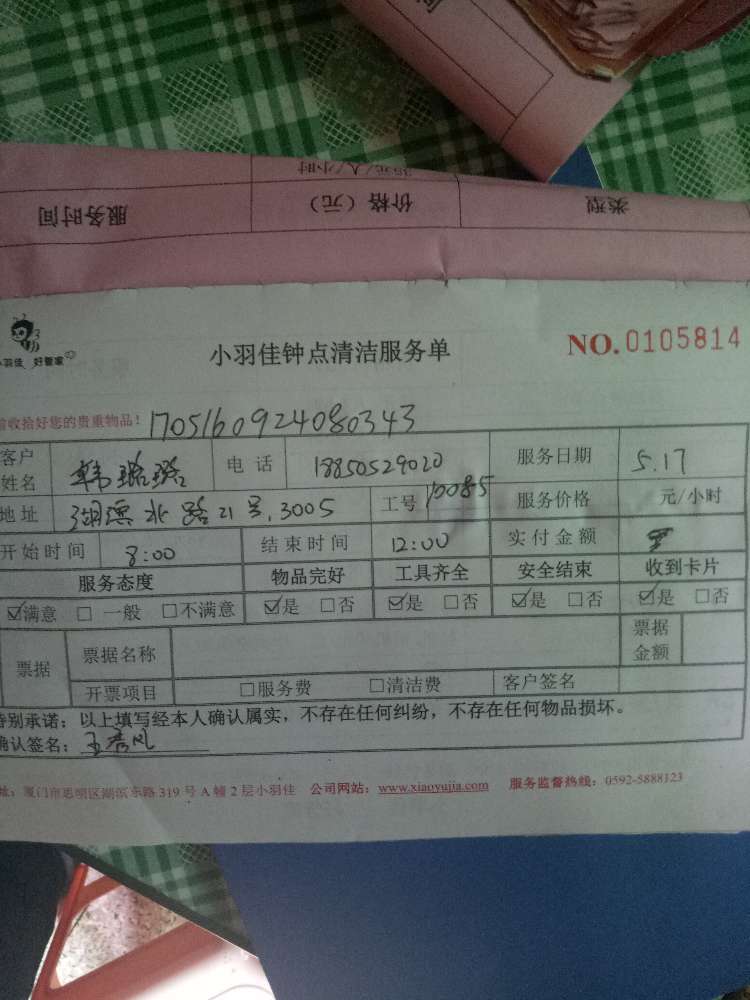 35元/人/小时
类型 价格（元） 服务时间
小羽佳 好管家
小羽佳钟点清洁服务单 NO.0105814
收拾好您的贵重物品! 1705160924080343
客户姓名 韩璐璐 电话 18850529020 服务日期 5.17
地址 湖滨北路21号,3005 工号 10085 服务价格 元/小时
开始时间 8:00 结束时间 12:00 实付金额
服务态度 物品完好 工具齐全 安全结束 收到卡片
☑满意 □一般 □不满意 ☑是 □否 ☑是 □否 ☑是 □否 ☑是 □否
票据 票据名称 票据金额
开票项目 □服务费 □清洁费 客户签名
特别承诺：以上填写经本人确认属实，不存在任何纠纷，不存在任何物品损坏。
确认签名：
址：厦门市思明区湖滨东路319号A幢2层小羽佳 公司网站：www.xiaoyujia.com 服务监督热线：0592-5888123